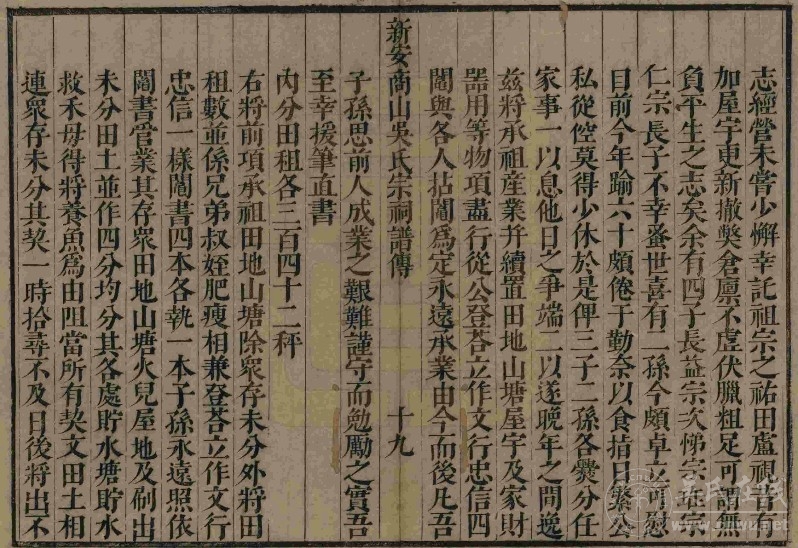 志經營未嘗少懈幸託祖宗之祐田廬視昔有
加屋宇更新撤獘倉廪不虛伏臘粗足可謂無
負平生之志矣余有四子長益宗次悌宗
仁宗長子不幸蚤世喜有一孫今頗卓立可慰
目前今年踰六十頗倦于勤奈以食指日繁公
私從倥莫得少休於是俾三子二孫各爨分任
家事一以息他日之爭端二以遂晚年之閒逸
兹將承祖産業并續置田地山塘屋宇及家財
器用等物項盡行從公登荅立作文行忠信四
鬮與各人拈鬮爲定永遠承業由今而後凡吾
新安商山吳氏宗祠譜傳 十九
子孫思前人成業之艱難謹守而勉勵之實吾
至幸援筆直書
內分田租各三百四十二秤
右將前項承祖田地山塘除衆存未分外將田
租數並係兄弟叔姪肥瘦相兼登荅立作文行
忠信一樣鬮書四本各執一本子孫永遠照依
鬮書管業其存衆田地山塘火兒屋地及刷出
未分田土並作四分均分其各處貯水塘貯水
救禾毋得將養魚爲由阻當所有契文田土相
連衆存未分其契一時拾尋不及日後將出不
吳氏在线
cnwu.net